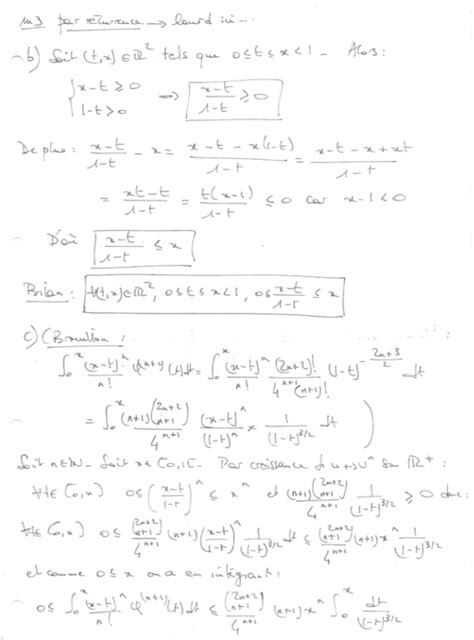 m3 par récurrence → lourd ici...
b) Soit (t,x) ∈ ℝ² tels que 0≤t≤x<1. Alors:
{ x-t ≥ 0
{ 1-t > 0 → (x-t)/(1-t) ≥ 0
De plus: (x-t)/(1-t) - x = (x-t-x(1-t))/(1-t) = (x-t-x+xt)/(1-t)
= (xt-t)/(1-t) = t(x-1)/(1-t) ≤ 0 car x-1<0
D'où (x-t)/(1-t) ≤ x
Bilan: ∀(t,x)∈ℝ², 0≤t≤x<1, 0≤(x-t)/(1-t) ≤ x
c) (Brouillon:
∫₀ˣ (x-t)ⁿ/n! φ⁽ⁿ⁺¹⁾(t)dt = ∫₀ˣ (x-t)ⁿ/n! (2n+2)!/(4ⁿ⁺¹(n+1)!) (1-t)^(-(2n+3)/2) dt
= ∫₀ˣ (n+1)(2n+2 n+1)/4ⁿ⁺¹ (x-t)ⁿ/(1-t)ⁿ × 1/(1-t)^(3/2) dt )
Soit n∈ℕ. Soit x∈[0,1[. Par croissance de u↦uⁿ sur ℝ⁺:
∀t∈[0,x] 0≤((x-t)/(1-t))ⁿ ≤ xⁿ et (n+1)(2n+2 n+1)/4ⁿ⁺¹ 1/(1-t)^(3/2) ≥ 0 donc:
∀t∈[0,x] 0≤ (2n+2 n+1)/4ⁿ⁺¹ (n+1)((x-t)/(1-t))ⁿ 1/(1-t)^(3/2) dt ≤ (2n+2 n+1)/4ⁿ⁺¹ (n+1)xⁿ 1/(1-t)^(3/2)
et comme 0≤x on a en intégrant:
0≤ ∫₀ˣ (x-t)ⁿ/n! φ⁽ⁿ⁺¹⁾(t)dt ≤ (2n+2 n+1)/4ⁿ⁺¹ (n+1)xⁿ ∫₀ˣ dt/(1-t)^(3/2)